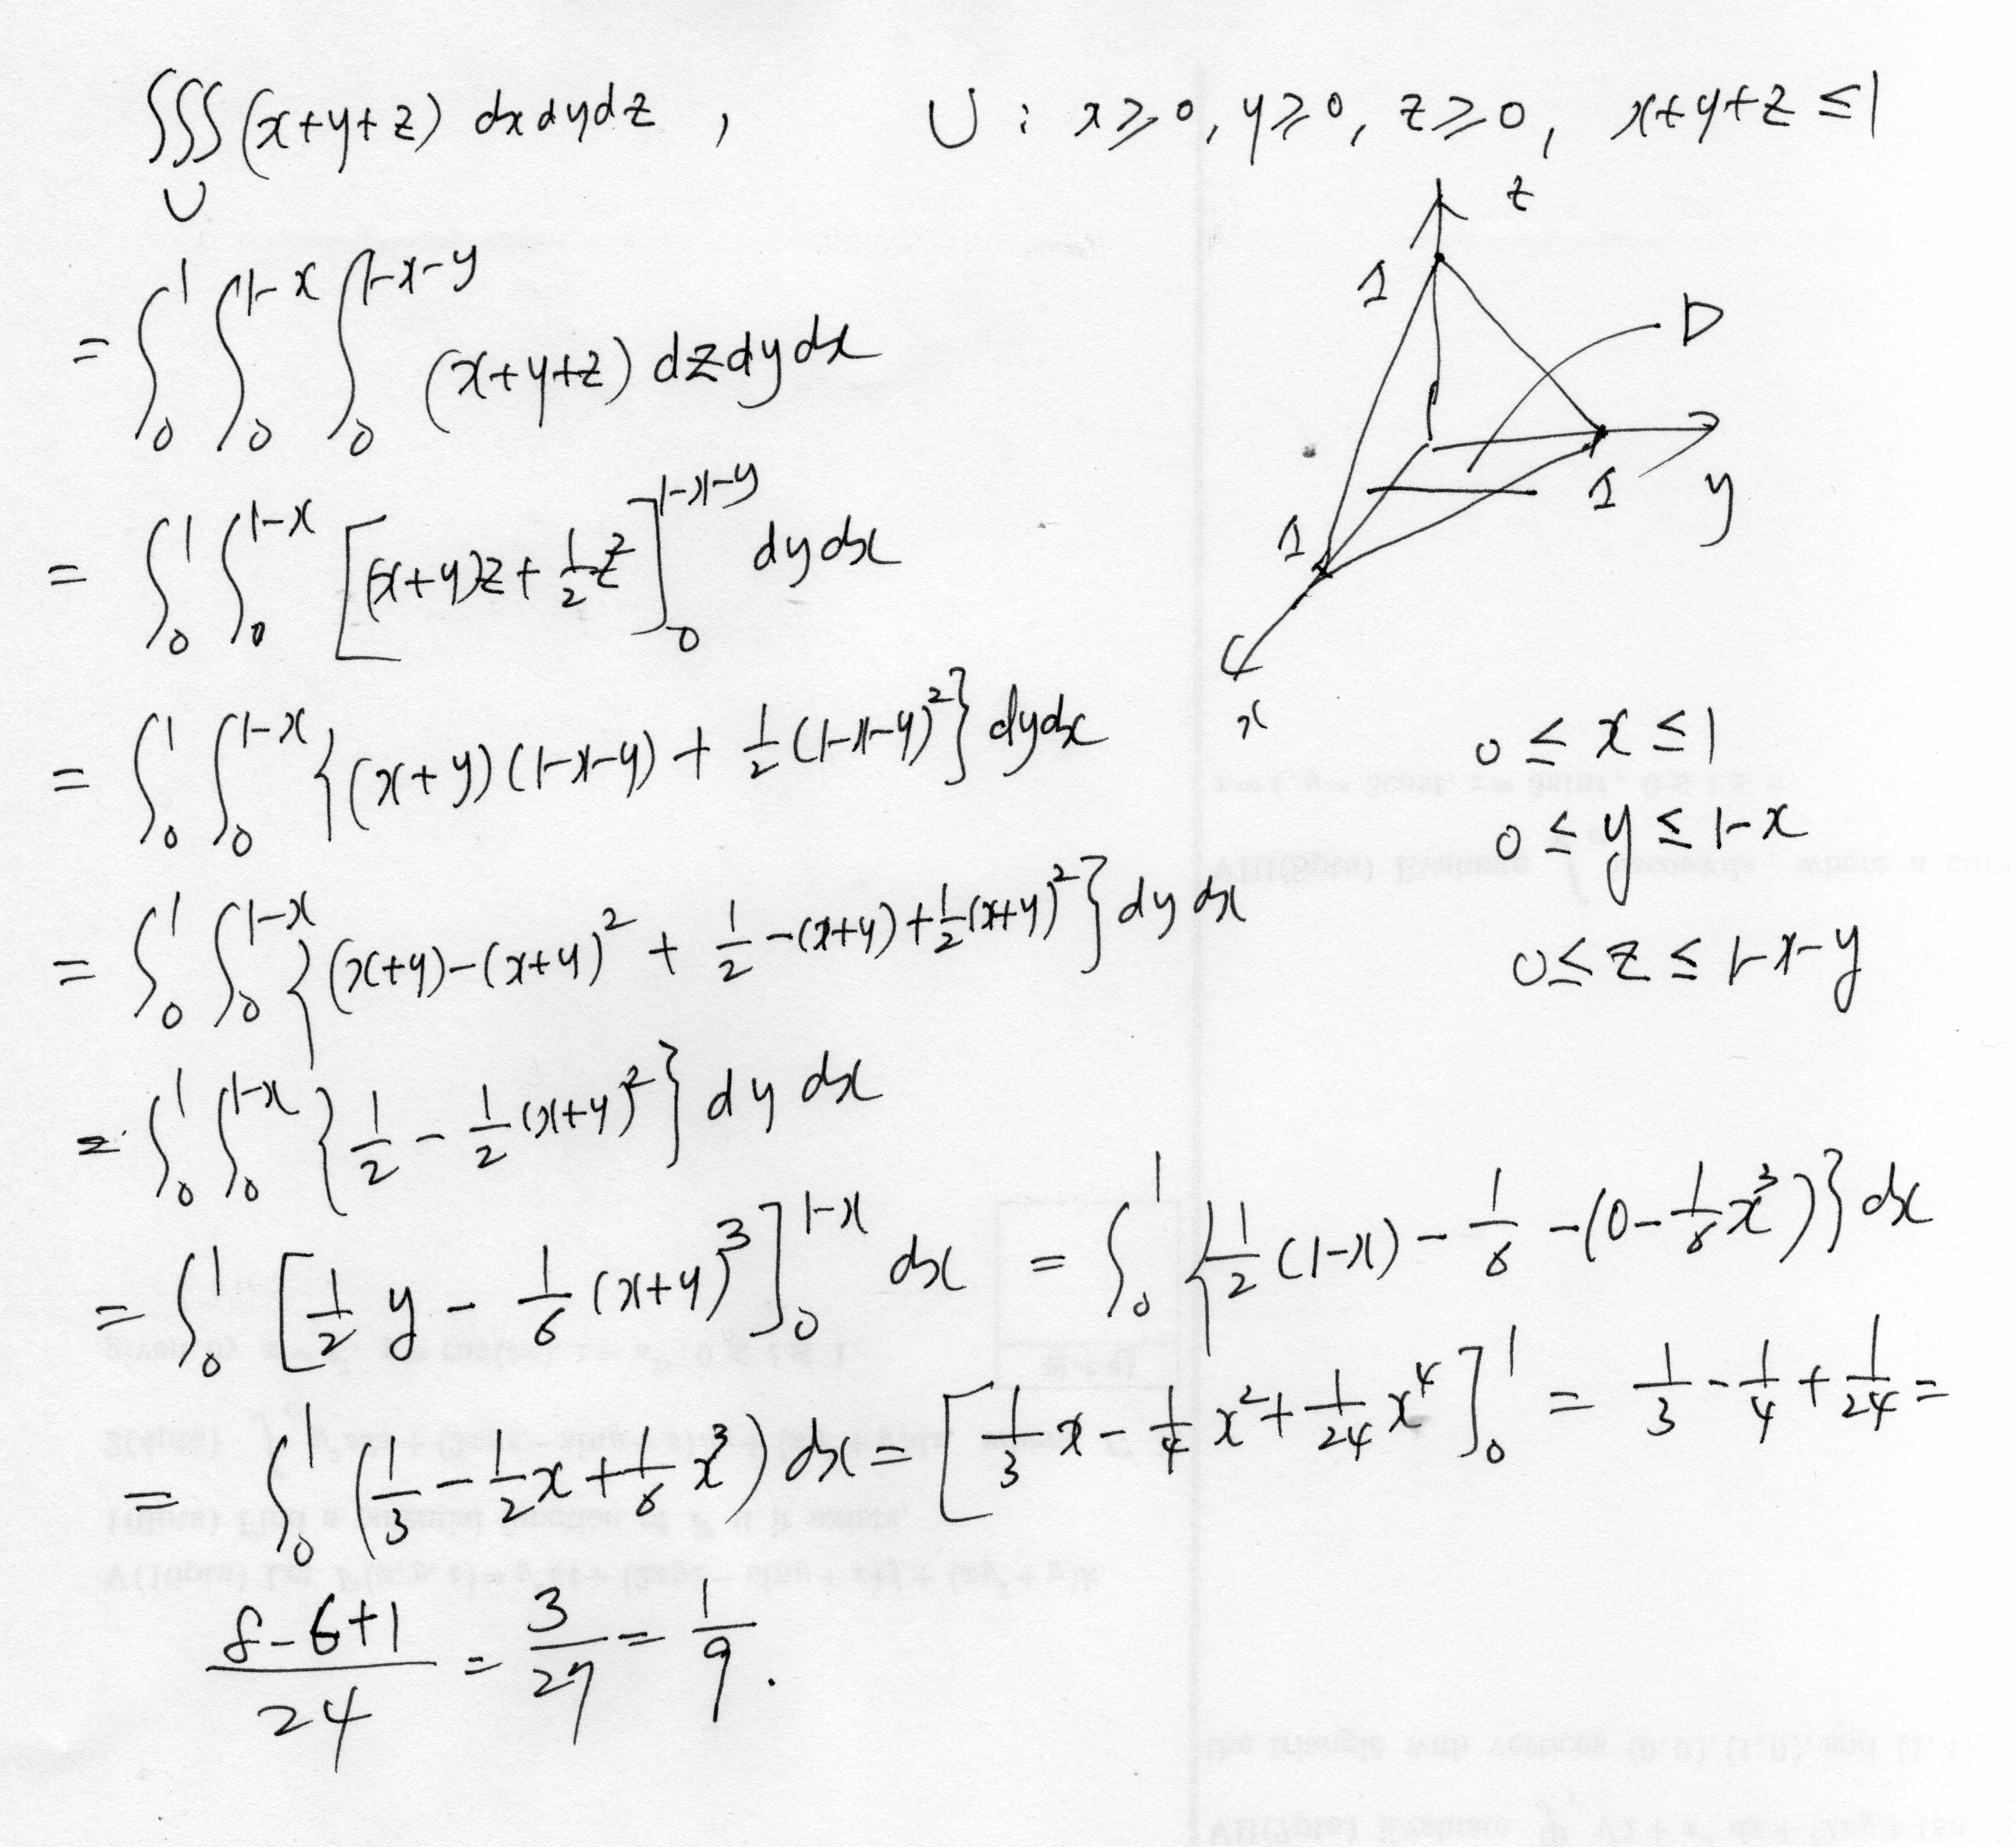 ∫∫∫_U (x+y+z) dx dy dz , U : x ≥ 0, y ≥ 0, z ≥ 0, x+y+z ≤ 1
= ∫_0^1 ∫_0^{1-x} ∫_0^{1-x-y} (x+y+z) dz dy dx
= ∫_0^1 ∫_0^{1-x} [(x+y)z + 1/2 z²]_0^{1-x-y} dy dx
= ∫_0^1 ∫_0^{1-x} {(x+y)(1-x-y) + 1/2 (1-x-y)²} dy dx
= ∫_0^1 ∫_0^{1-x} {(x+y)-(x+y)² + 1/2 -(x+y) + 1/2 (x+y)²} dy dx
= ∫_0^1 ∫_0^{1-x} {1/2 - 1/2 (x+y)²} dy dx
= ∫_0^1 [1/2 y - 1/6 (x+y)³]_0^{1-x} dx = ∫_0^1 {1/2 (1-x) - 1/6 -(0- 1/6 x³)} dx
= ∫_0^1 (1/3 - 1/2 x + 1/6 x³) dx = [1/3 x - 1/4 x² + 1/24 x⁴]_0^1 = 1/3 - 1/4 + 1/24 =
(8-6+1)/24 = 3/27 = 1/9 .
z
1
D
1
y
1
x
0 ≤ x ≤ 1
0 ≤ y ≤ 1-x
0 ≤ z ≤ 1-x-y